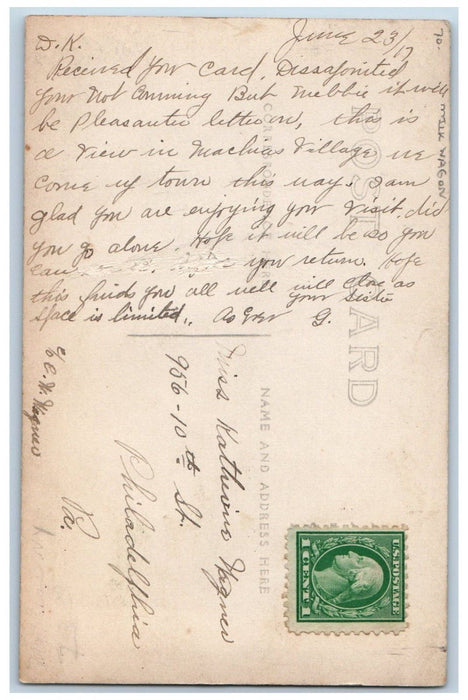 June 23/17
D.K.
Received your Card, Dissapointed
your Not Comming But Mebbie it will
be Pleasanter letteron, this is
a View in Machias Village we
Come up town this way. I am
glad you are enjoying you Visit. did
you go alone. Hope it will be so you
can you return. Hope
this finds you all well will close as
space is limited,. As Ever your Sister
G.
70-
MILK WAGON
POST CARD
CORRESPONDENCE HERE
NAME AND ADDRESS HERE
Miss Katherine Wagner
956-10th St.
Philadelphia
Pa.
c/o C. W. Wagner
U.S. POSTAGE
1 CENT 1